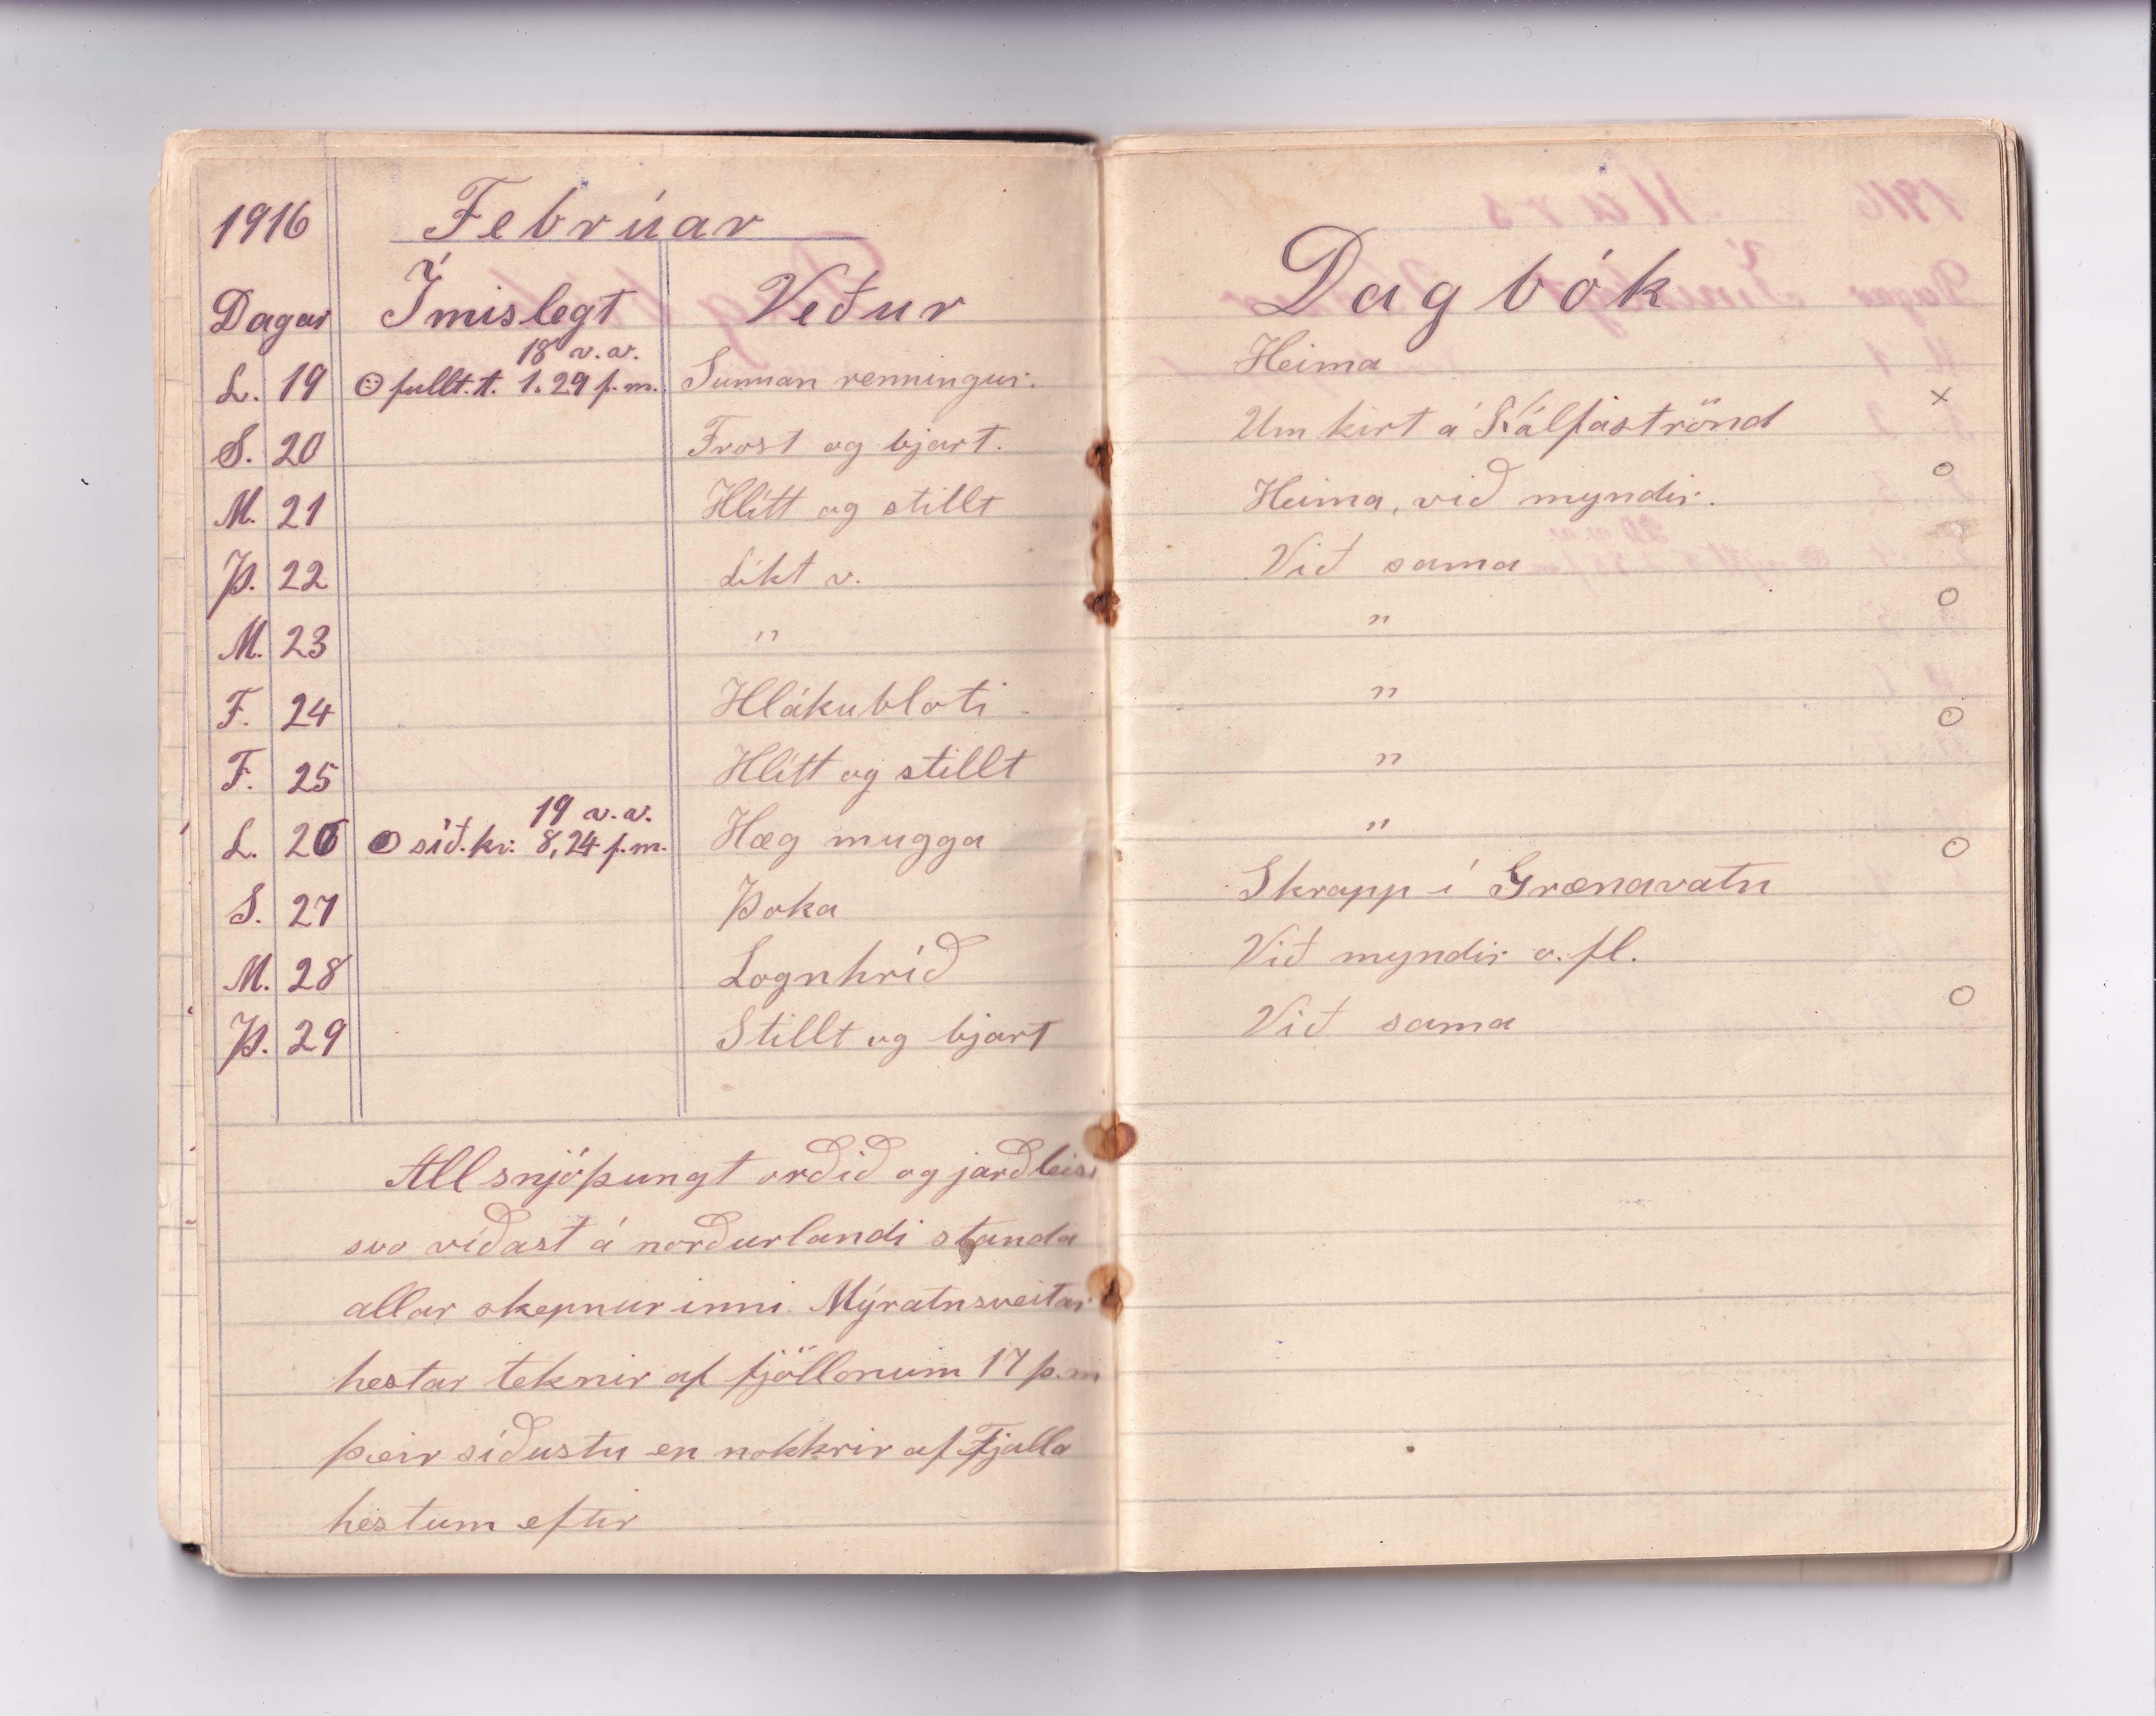 1916 Febrúar
Dagar Ímislegt Veður
18 v.v.
L. 19 fullt.t. 1.29 f.m. Sunnan renningur.
S. 20 Frost og bjart.
M. 21 Hlítt og stillt
Þ. 22 Líkt v.
M. 23 "
F. 24 Hlákubloti
F. 25 Hlítt og stillt
19 v.v.
L. 26 síð.kv. 8,24 f.m. Hæg mugga
S. 27 Þoka
M. 28 Lognhríð
Þ. 29 Stillt og bjart
All snjóþungt orðið og jarðleiss
svo víðast á norðurlandi standa
allar skepnur inni. Mývatnsveitar
hestar teknir af fjöllonum 17 þ.m
þeir síðustu en nokkrir af Fjalla
hestum eftir
Dagbók
Heima
Um kirt á Kálfaströnd x
Heima, við myndir. o
Við sama
" o
"
" o
"
o
Skrapp í Grænavatn
Við myndir o.fl.
Við sama o